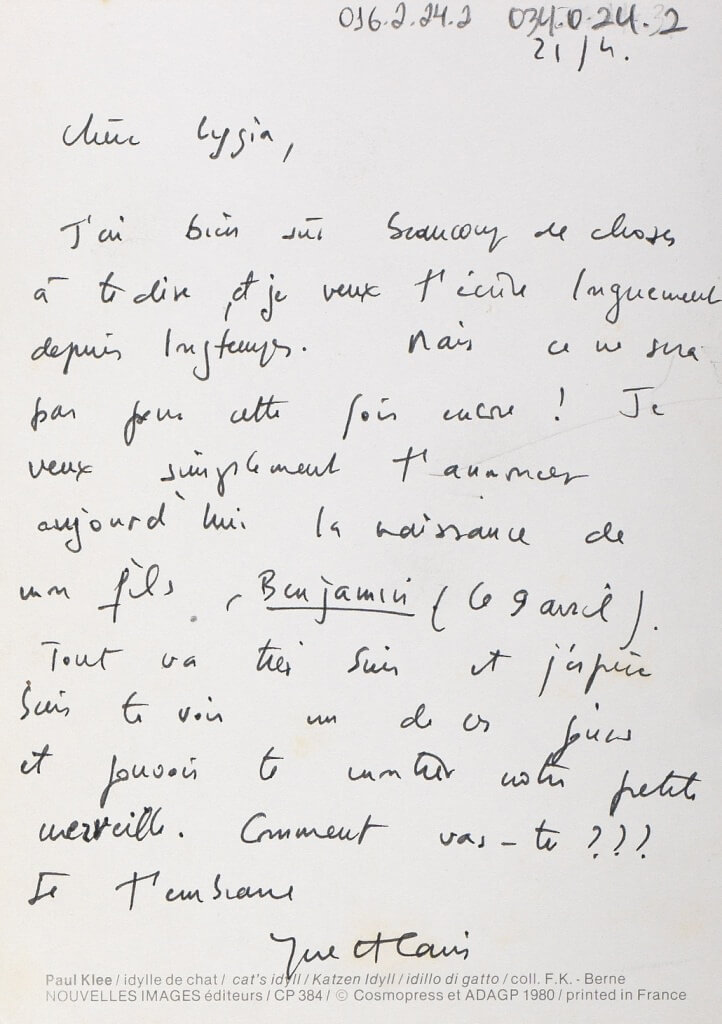 016.2.24.2 034.0.24.32
21/4.
Chère Lygia,
J'ai bien sûr beaucoup de choses
à te dire, et je veux t'écrire longuement
depuis longtemps. Mais ce ne sera
pas pour cette fois encore ! Je
veux simplement t'annoncer
aujourd'hui la naissance de
mon fils, Benjamin (le 9 avril).
Tout va très bien et j'espère
bien te voir un de ces jours
et pouvoir te montrer notre petite
merveille. Comment vas-tu ???
Je t'embrasse
Paul Klee / idylle de chat / cat's idyll / Katzen Idyll / idillo di gatto / coll. F.K. - Berne
NOUVELLES IMAGES éditeurs / CP 384 / © Cosmopress et ADAGP 1980 / printed in France